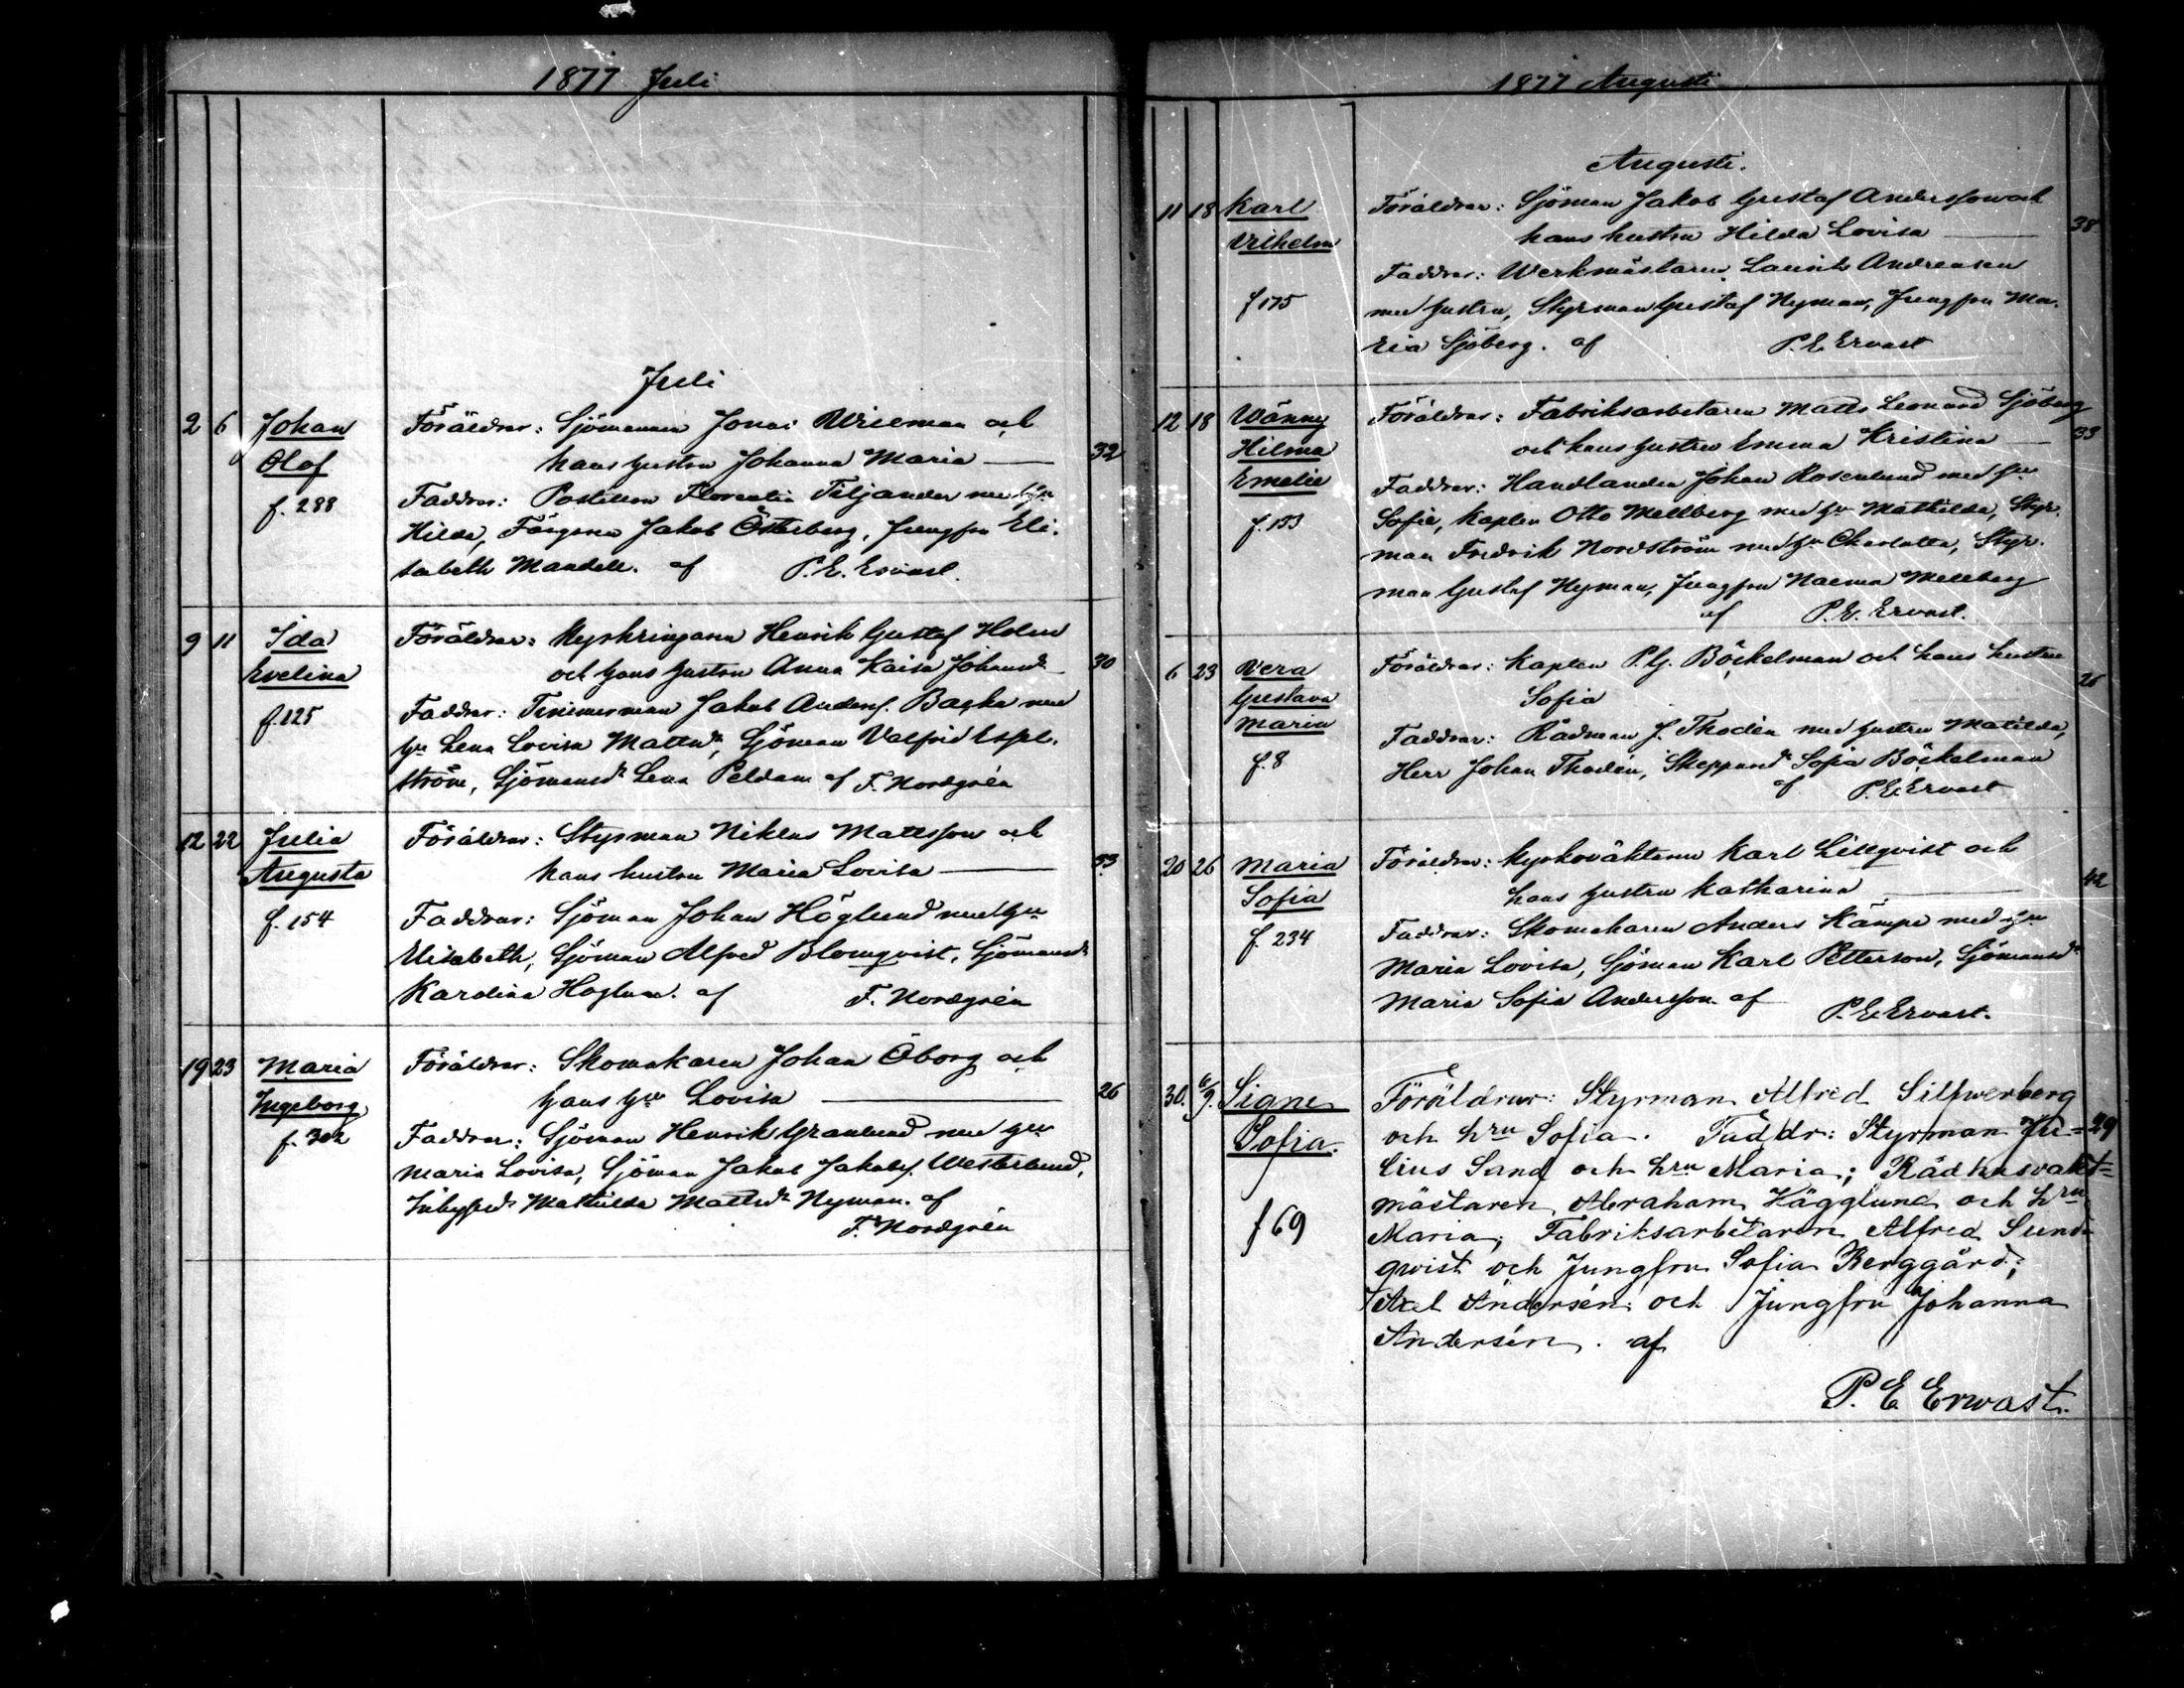 1877 Juli
Juli
2 6 Johan Föräldrar: Sjömannen Jonas Wileman och
Olof hans hustru Johanna Maria — 32
f. 288 Faddrar: Postillon Florentin Tiljander med hu
Hilda, Färgaren Jakob Österberg, Jungfru Eli-
sabeth Mandell. af P. E. Ervast.
9 11 Ida Föräldrar: Kyrkringaren Henrik Gustaf Holm
Evelina och hans hustru Anna Kaisa Johansdr 30
f. 125 Faddrar: Timmerman Jakob Andersf. Backa med
hu Lena Lovisa Mattsdr, Sjöman Valfrid Espl-
ström, Sjömansdr Lena Peldan af F. Nordgrén
12 22 Julia Föräldrar: Styrman Niklas Mattsson och
Augusta hans hustru Maria Lovisa — 33
f. 154 Faddrar: Sjöman Johan Höglund med hu
Elisabeth, Sjöman Alfred Blomqvist, Sjömansdr
Karolina Höglund. af F. Nordgrén
19 23 Maria Föräldrar: Skomakaren Johan Öborg och
Ingeborg hans hu Lovisa — 26
f. 302 Faddrar: Sjöman Henrik Granlund med hu
Maria Lovisa, Sjöman Jakob Jakobsf. Westerlund,
Inhysesdr Mathilda Mattsdr Nyman. af
F. Nordgrén
1877 Augusti
Augusti.
11 18 Karl Föräldrar: Sjöman Jakob Gustaf Andersson och
Vilhelm hans hustru Hilda Lovisa — 38
Faddrar: Werkmästaren Laurits Andreasen
f 175 med hustru, Styrman Gustaf Nyman, Jungfru Ma-
ria Sjöberg. af P. E. Ervast
12 18 Wänny Föräldrar: Fabriksarbetaren Matts Leonard Sjöberg
Hilma och hans hustru Emma Kristina — 33
Emelie Faddrar: Handlanden Johan Rosenlund med hu
f. 153 Sofie, Kapten Otto Mellberg med hu Mathilda, Styr-
man Fredrik Nordström med hu Charlotta, Styr-
man Gustaf Nyman, Jungfru Naema Mellberg
af P. E. Ervast.
6 23 Vera Föräldrar: Kapten P. G. Böckelman och hans hustru
Gustava Sofia 25
Maria Faddrar: Rådman J. Thodén med hustru Matilda,
f. 8 Herr Johan Thodén, Skeppardr Sofia Böckelman
af P. E. Ervast
20 26 Maria Föräldrar: Kyrkoväktaren Karl Lillqvist och
Sofia hans hustru Katharina — 42
f. 234 Faddrar: Skomakaren Anders Kämpe med hu
Maria Lovisa, Sjöman Karl Petterson, Sjömansdr
Maria Sofia Andersson af P. E. Ervast.
30. 6/9. Signe Föräldrar: Styrman Alfred Silfwerberg
Sofia. och hru Sofia. Faddr: Styrman Ju- 29
lius Sand och hru Maria; Rådhusvakt=
mästaren Abraham Hägglund och hru
f 69 Maria; Fabriksarbetaren Alfred Sund-
qwist och Jungfru Sofia Berggård;
Axel Andersén och Jungfru Johanna
Andersén. af
P. E. Erwast.